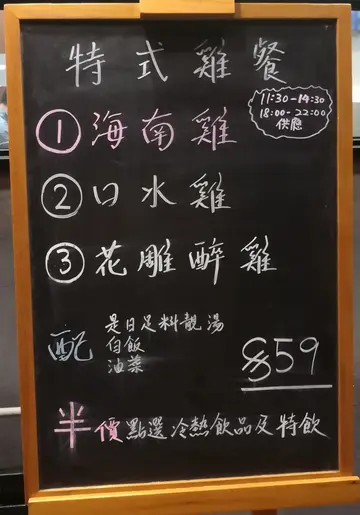 特式雞餐
11:30-14:30
18:00-22:00
供應
① 海南雞
② 口水雞
③ 花雕醉雞
配
是日足料靚湯
白飯
油菜
$59
半價點選冷熱飲品及特飲